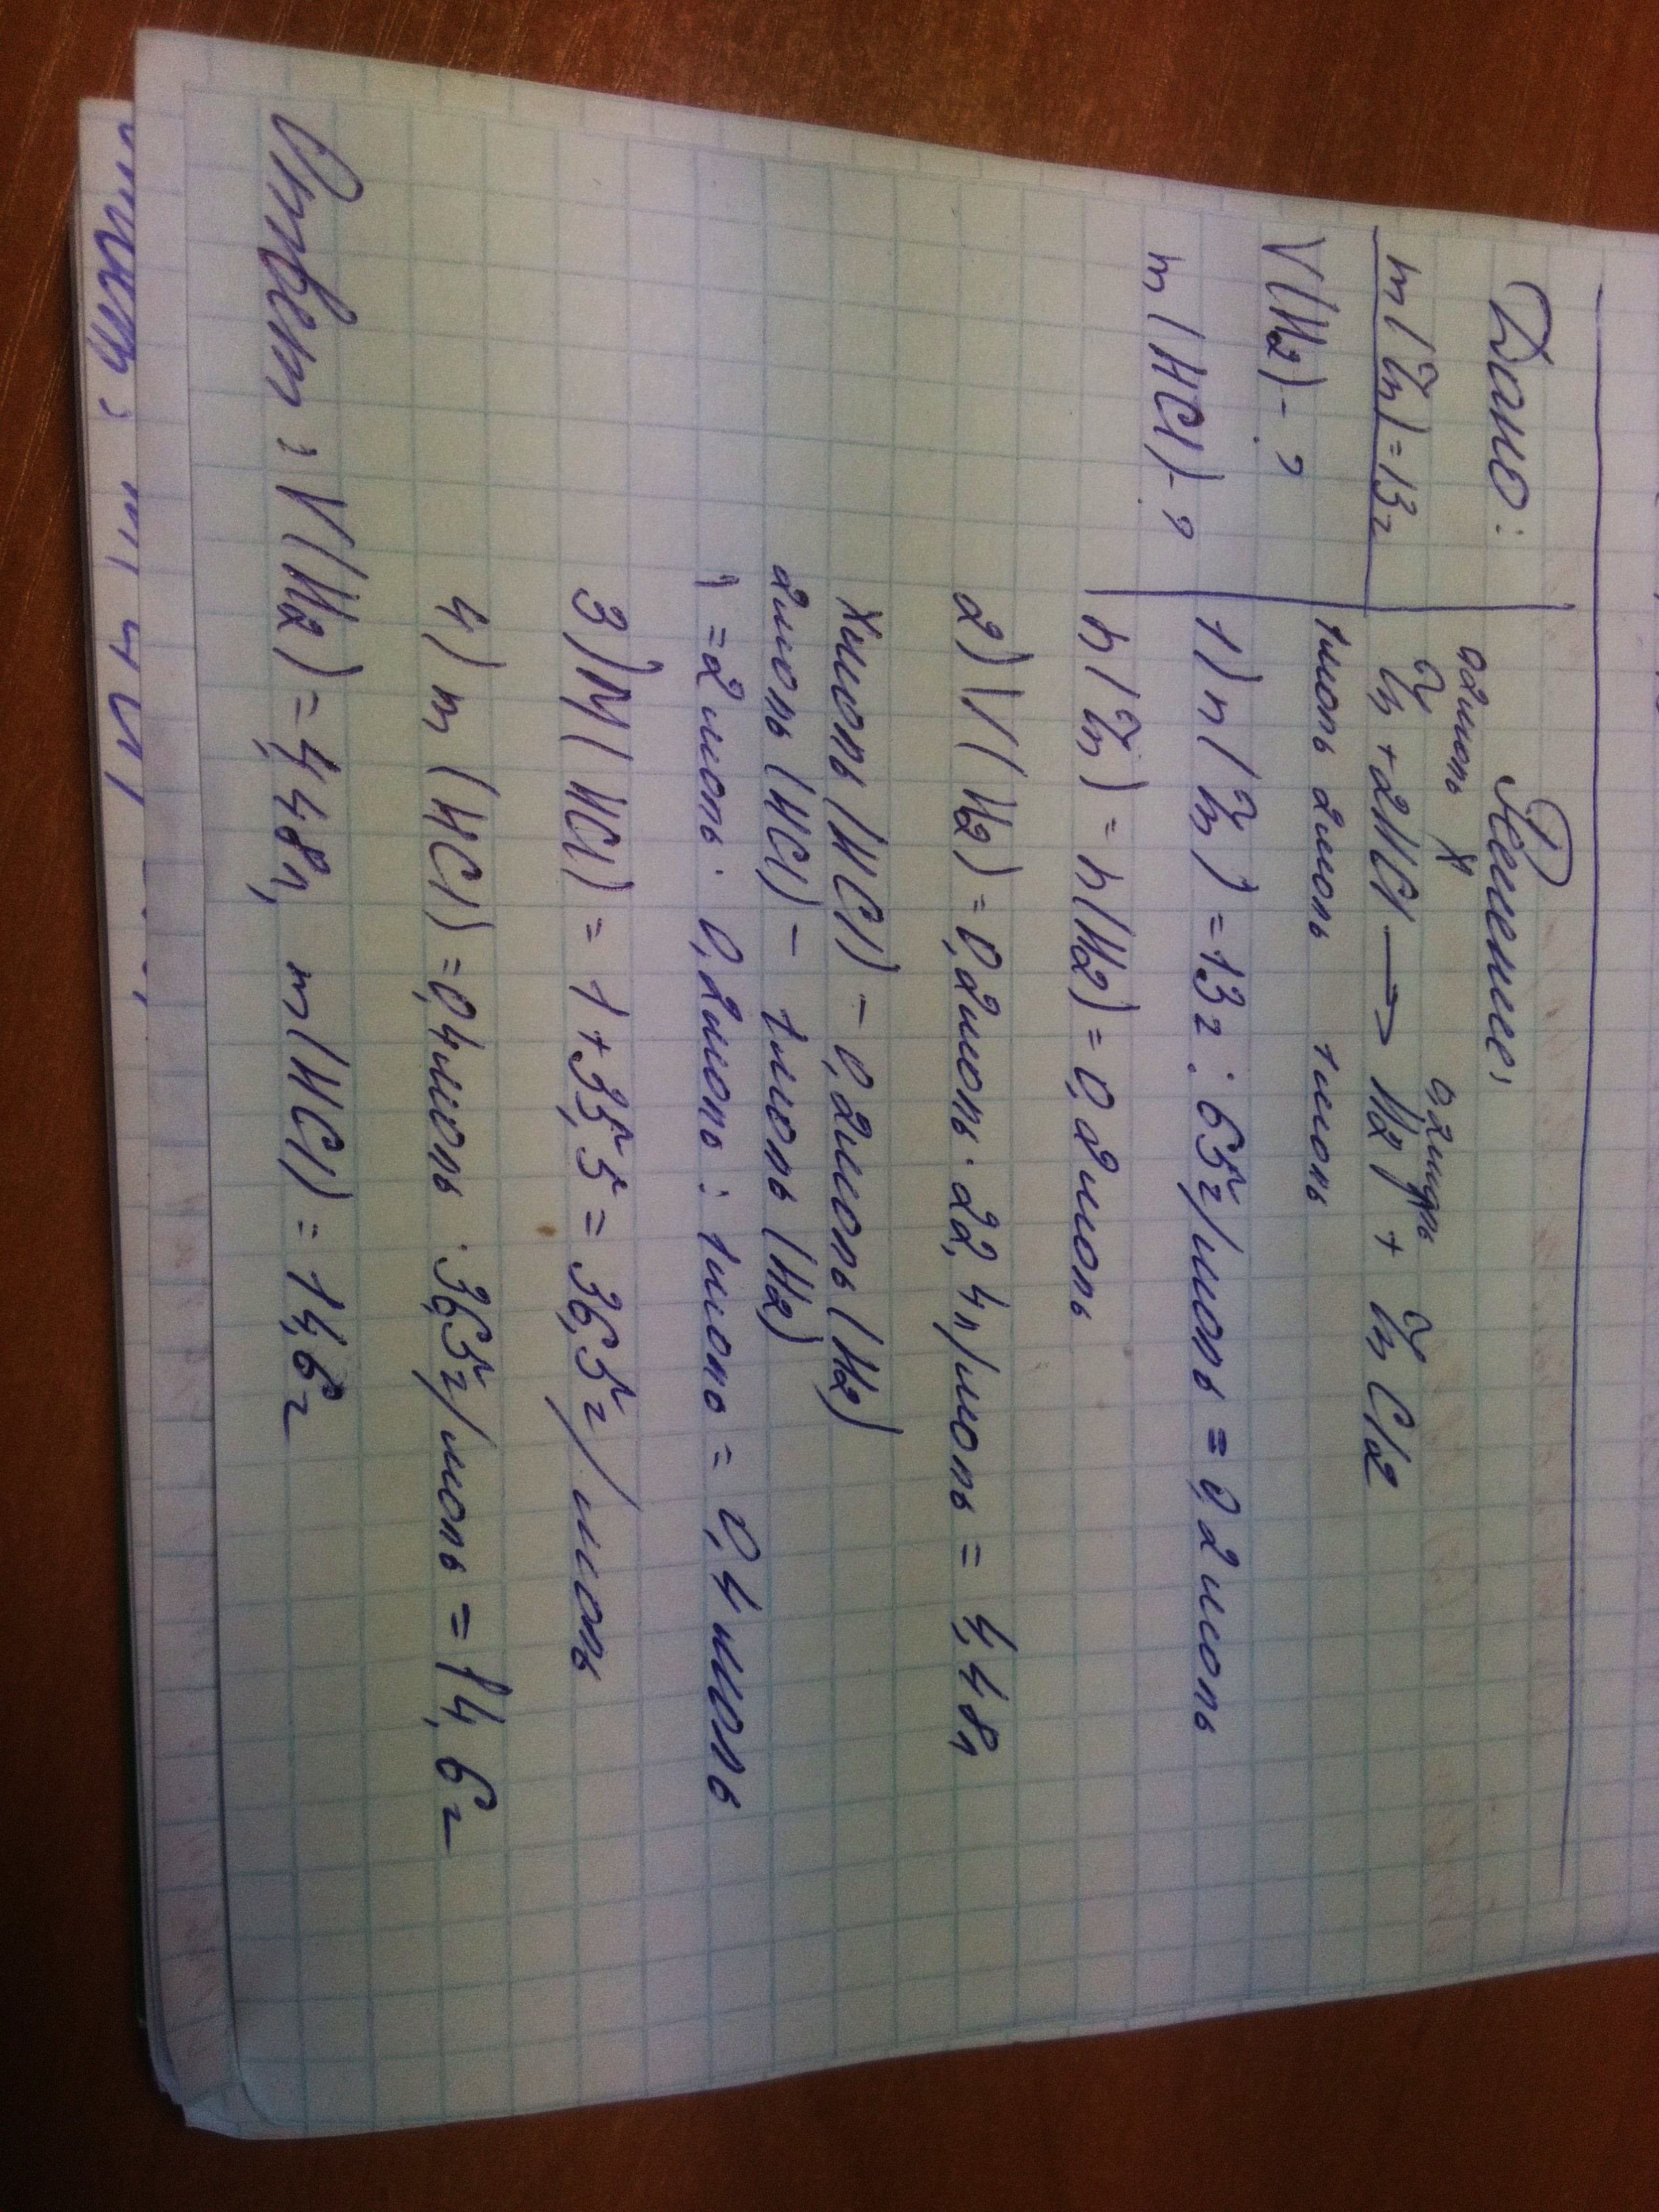 Дано:
m(Zn)=13г
V(H2)-?
m(HCl)-?
Решение:
0,2моль X 0,2моль
Zn+2HCl → H2↑ + ZnCl2
1моль 2моль 1моль
1) n(Zn)=13г:65г/моль=0,2моль
n(Zn)=n(H2)=0,2моль
2) V(H2)=0,2моль·22,4л/моль=4,48л
Xмоль(HCl)-0,2моль(H2)
2моль(HCl)-1моль(H2)
=2моль·0,2моль:1моль=0,4моль
3) M(HCl)=1+35,5=36,5г/моль
4) m(HCl)=0,4моль·36,5г/моль=14,6г
Ответ: V(H2)=4,48л, m(HCl)=14,6г